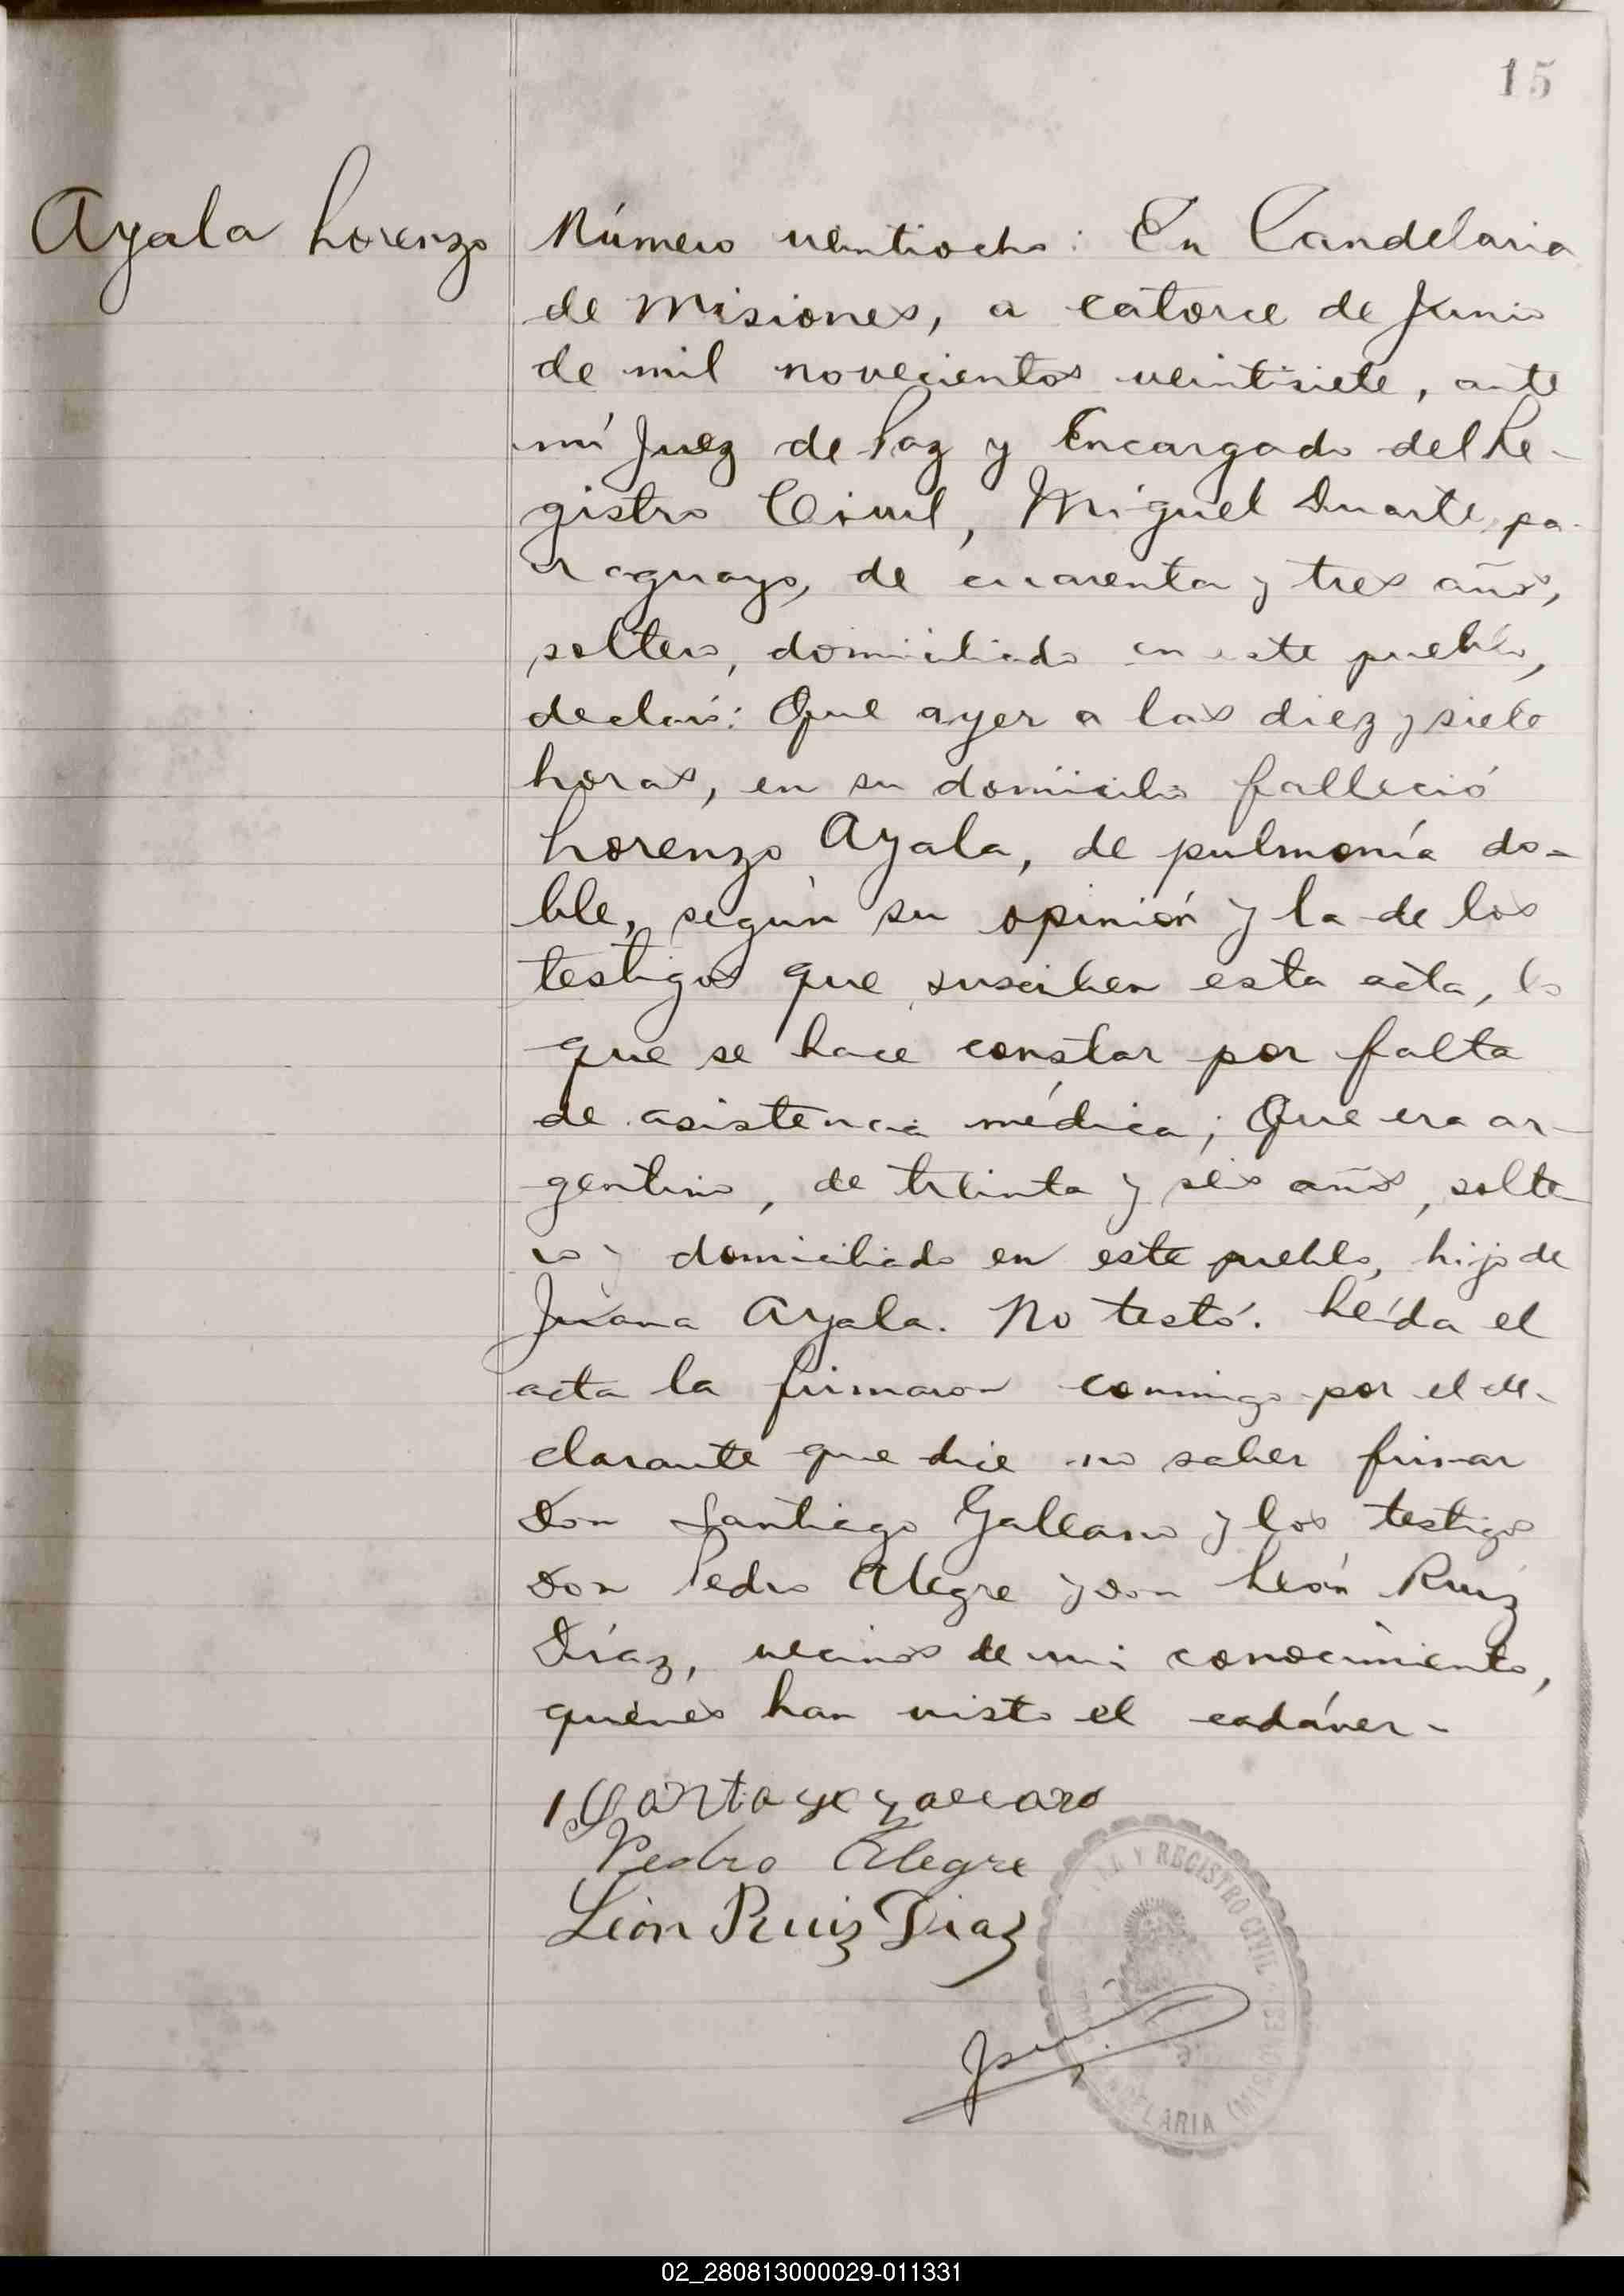 15
Ayala Lorenzo
Número veintiocho: En Candelaria
de Misiones, a catorce de Junio
de mil novecientos veintisiete, ante
mí Juez de Paz y Encargado del Re-
gistro Civil, Miguel Duarte, pa-
raguayo, de cuarenta y tres años,
soltero, domiciliado en este pueblo,
declaró: Que ayer a las diez y siete
horas, en su domicilio falleció
Lorenzo Ayala, de pulmonía do-
ble, según su opinión y la de los
testigos que suscriben esta acta, lo
que se hace constar por falta
de asistencia médica; Que era ar-
gentino, de treinta y seis años, solte-
ro y domiciliado en este pueblo, hijo de
Juana Ayala. No testó. Leída el
acta la firmaron conmigo por el de-
clarante que dice no saber firmar
Don Santiago Galeano y los testigos
Don Pedro Alegre y Don León Ruiz
Díaz, vecinos de mi conocimiento,
quiénes han visto el cadáver-
Pedro Alegre
León Ruiz Diaz
Y REGISTRO CIVIL
CANDELARIA (MISIONES)
02_280813000029-011331